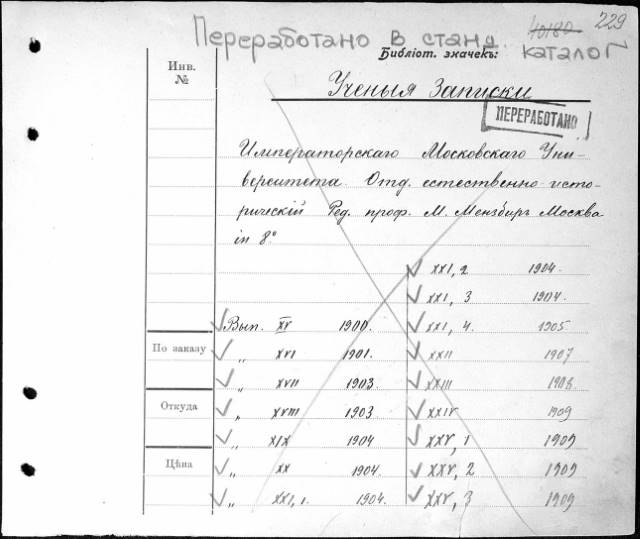 229
40180
Переработано в станд. каталог
Библіот. значекъ:
Инв.
№
Ученыя Записки
ПЕРЕРАБОТАНО
Императорскаго Московскаго Уни-
верситета. Отд. естественно-исто-
рическій Ред. проф. М. Мензбиръ Москва
in 8°
Вып. XV 1900.
По заказу
„ XVI 1901.
„ XVII 1903.
Откуда
„ XVIII 1903
„ XIX 1904
Цѣна
„ XX 1904.
„ XXI, 1. 1904.
XXI, 2 1904.
XXI, 3 1904.
XXI, 4. 1905
XXII 1907
XXIII 1908.
XXIV 1909
XXV, 1 1909
XXV, 2 1909
XXV, 3 1909